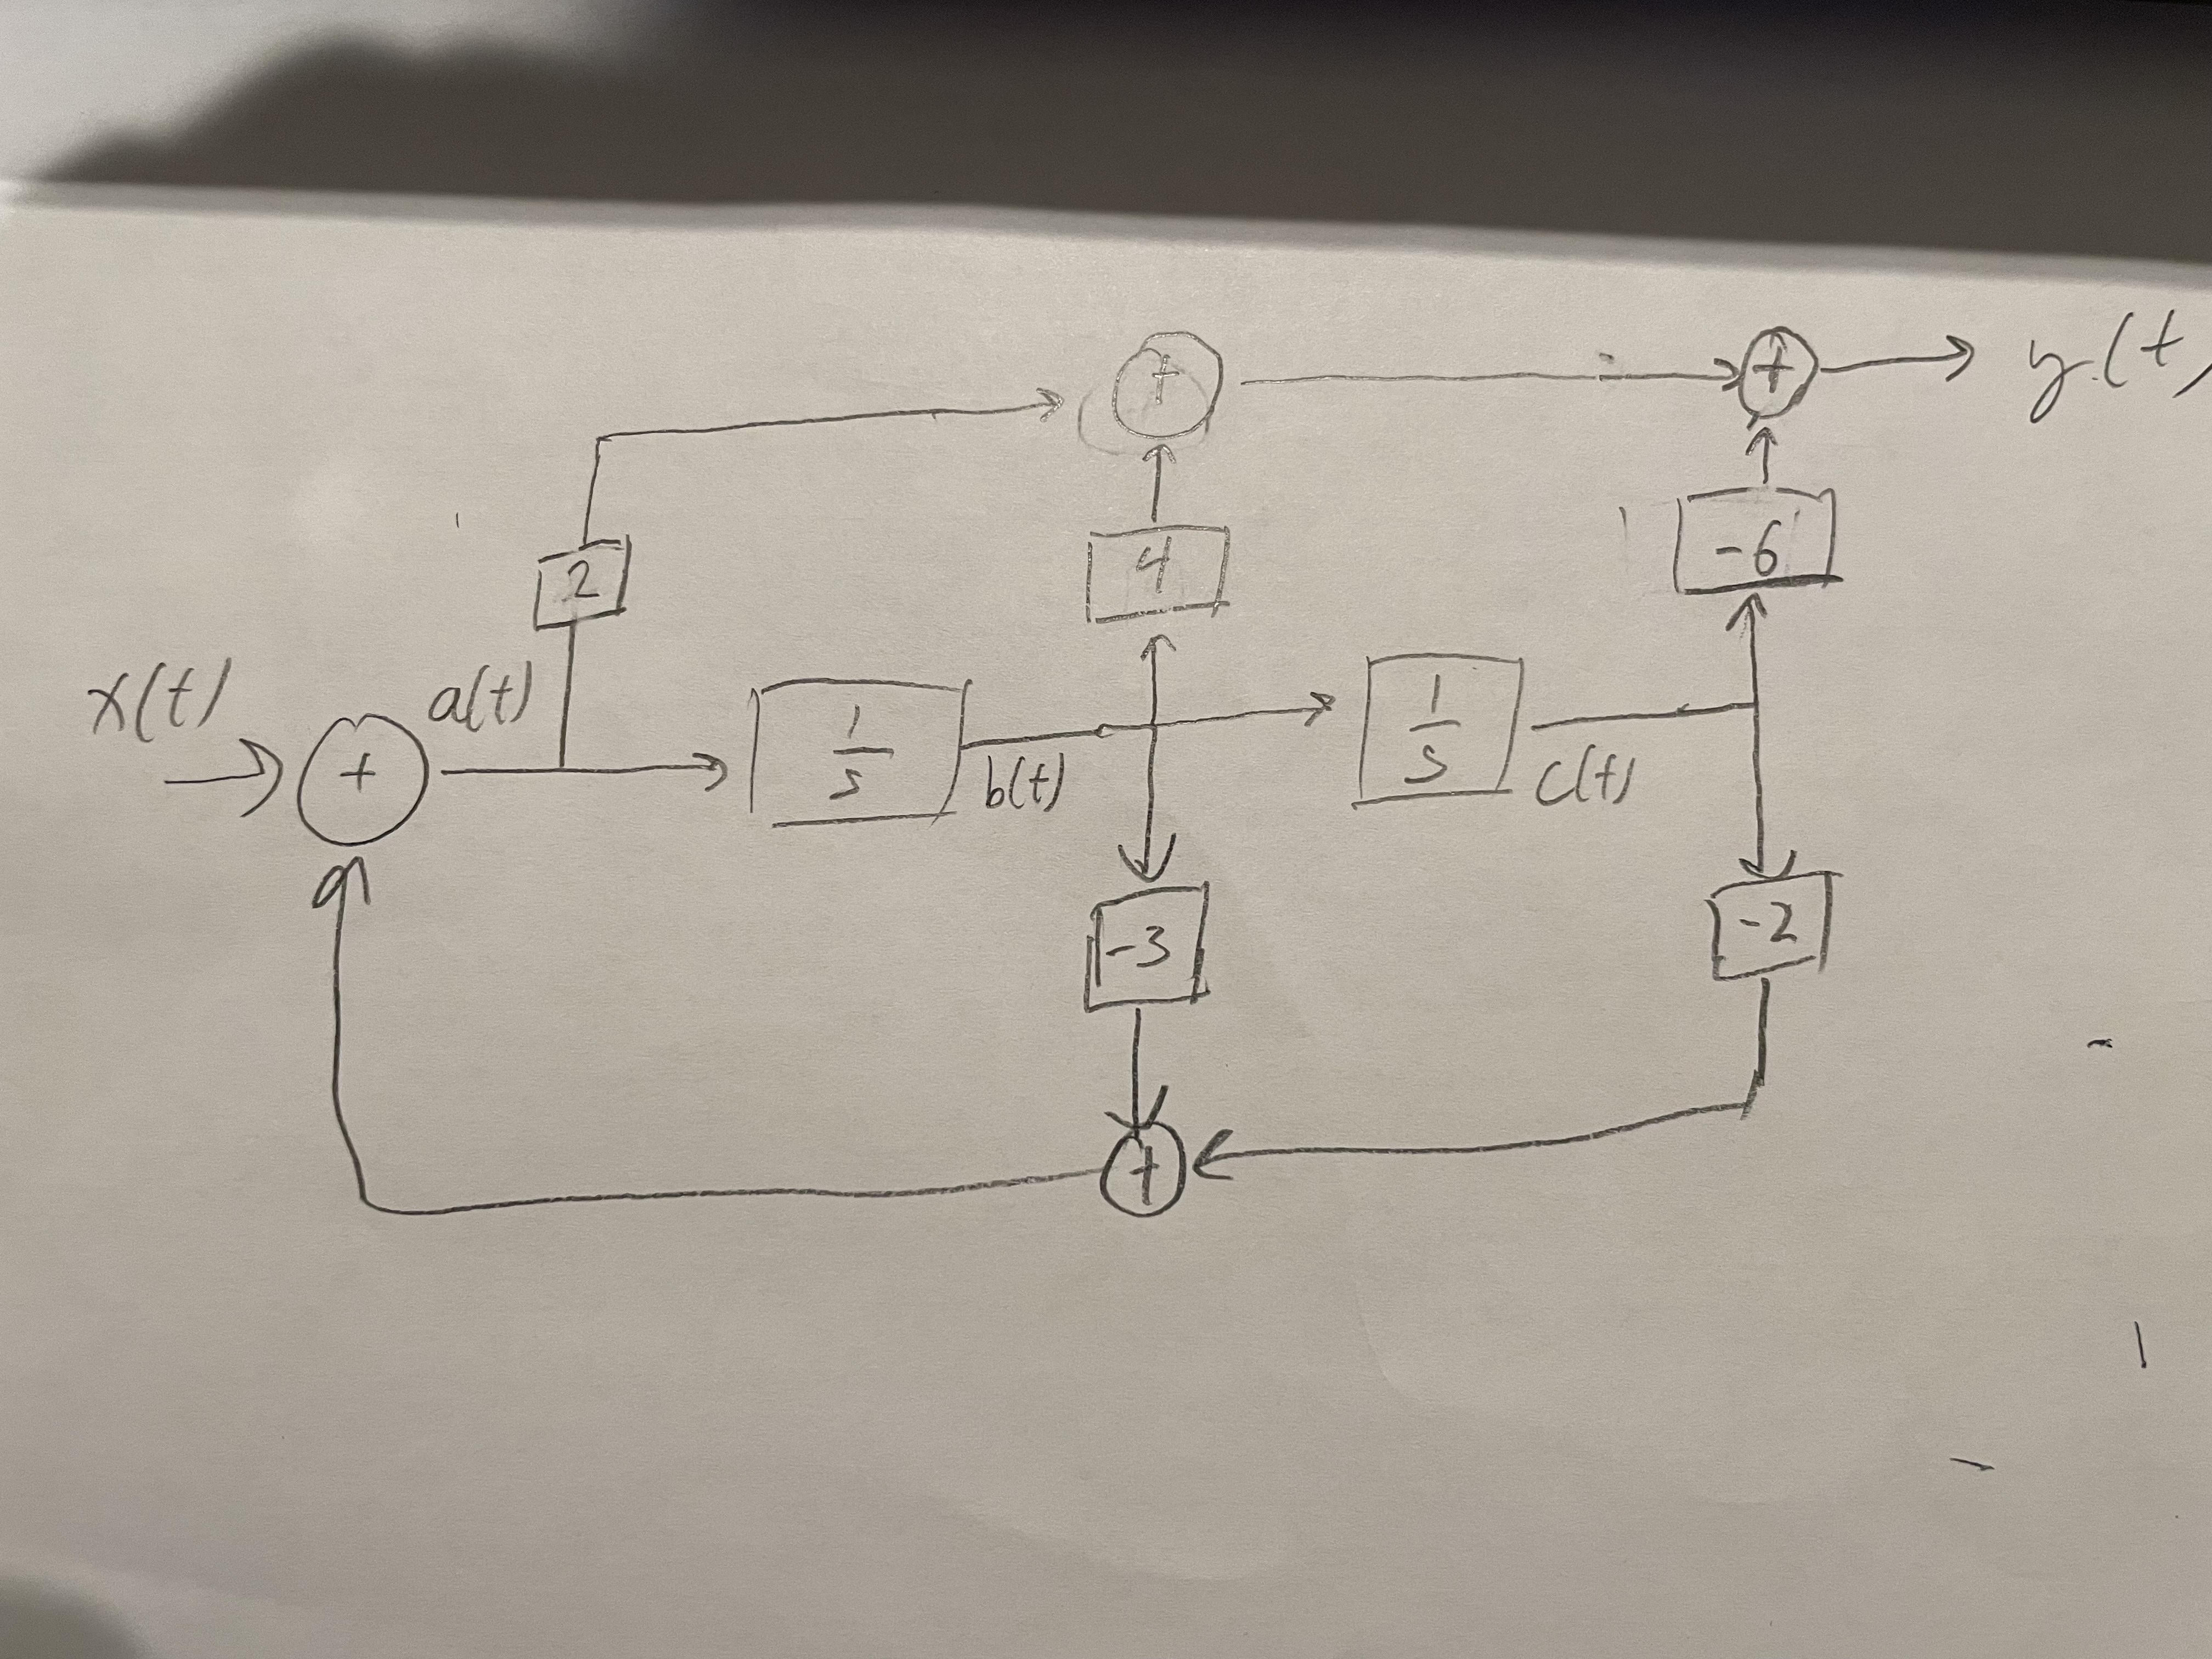 +
+
y(t)
2
4
-6
x(t)
a(t)
+
1
s
b(t)
1
s
c(t)
-3
-2
+